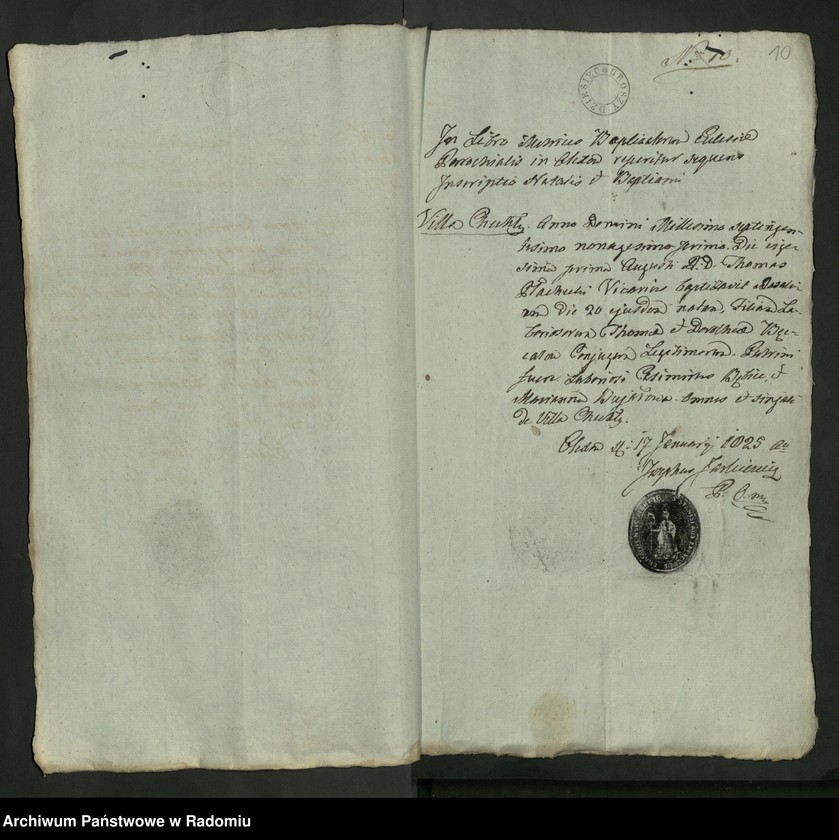 No 10.
10
DZIESIĘC GROSZY
In Libro Metrices Baptisatorum Ecclesiæ
Parochialis in Chlewa reperitur sequens
Inscriptio Natalis et Baptismi
Villa Chechły. Anno Domini Millesimo septingen-
tesimo nonagesimo primo. Die vige-
sima prima Augusti A. D. Thomas
Vicarius baptisavit
Die 20 ejusdem natam, Filiam La-
boriosorum Thomæ et Dorotheæ
Conjugum Legitimorum. Patrini
fuere Laboriosi Casimirus et
Marianna omnes et singuli
de Villa Chechły.
d: 17 Januarij 1825 ao
Josephus
P.
Archiwum Państwowe w Radomiu